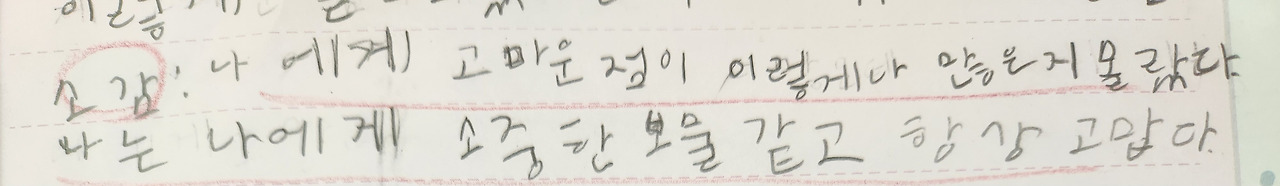 소감: 나 에게 고마운 점이 이렇게나 많은지 몰랐다.
나는 나에게 소중한 보물 같고 항상 고맙다.